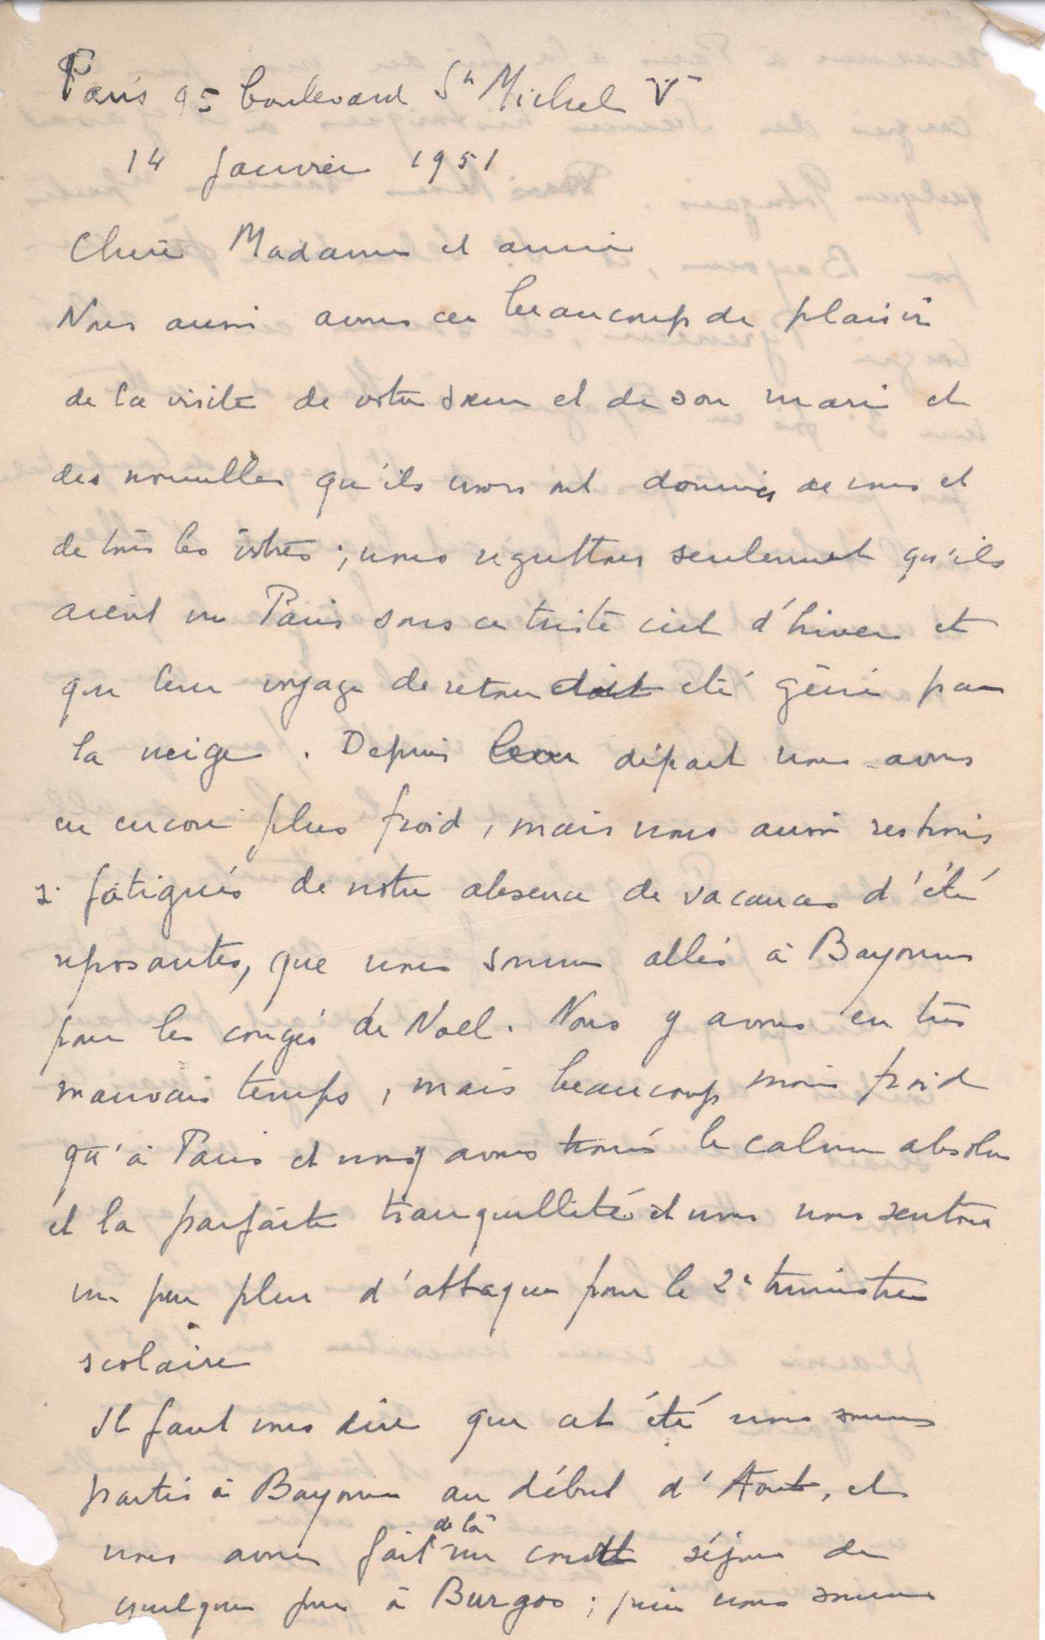 Paris 95 boulevard St Michel Ve
14 Janvier 1951
Chère Madame et amie
Nous aussi avons eu beaucoup de plaisir
de la visite de votre sœur et de son mari et
des nouvelles qu'ils nous ont données de vous et
de tous les vôtres ; nous regrettons seulement qu'ils
aient vu Paris sous ce triste ciel d'hiver et
que leur voyage de retour ait été gêné par
la neige . Depuis leur départ nous avons
eu encore plus froid , mais nous aussi restions
si fatigués de notre absence de vacances d'été
reposantes, que nous sommes allés à Bayonne
pour les congés de Noel. Nous y avons eu très
mauvais temps , mais beaucoup moins froid
qu'à Paris et nous y avons trouvé le calme absolu
et la parfaite tranquillité et nous nous sentons
un peu plus d'attaque pour le 2e trimestre
scolaire
Il faut vous dire que cet été nous sommes
partis à Bayonne au début d'Aout, et
nous avons fait de là un court séjour de
quelques jours à Burgos ; puis nous sommes